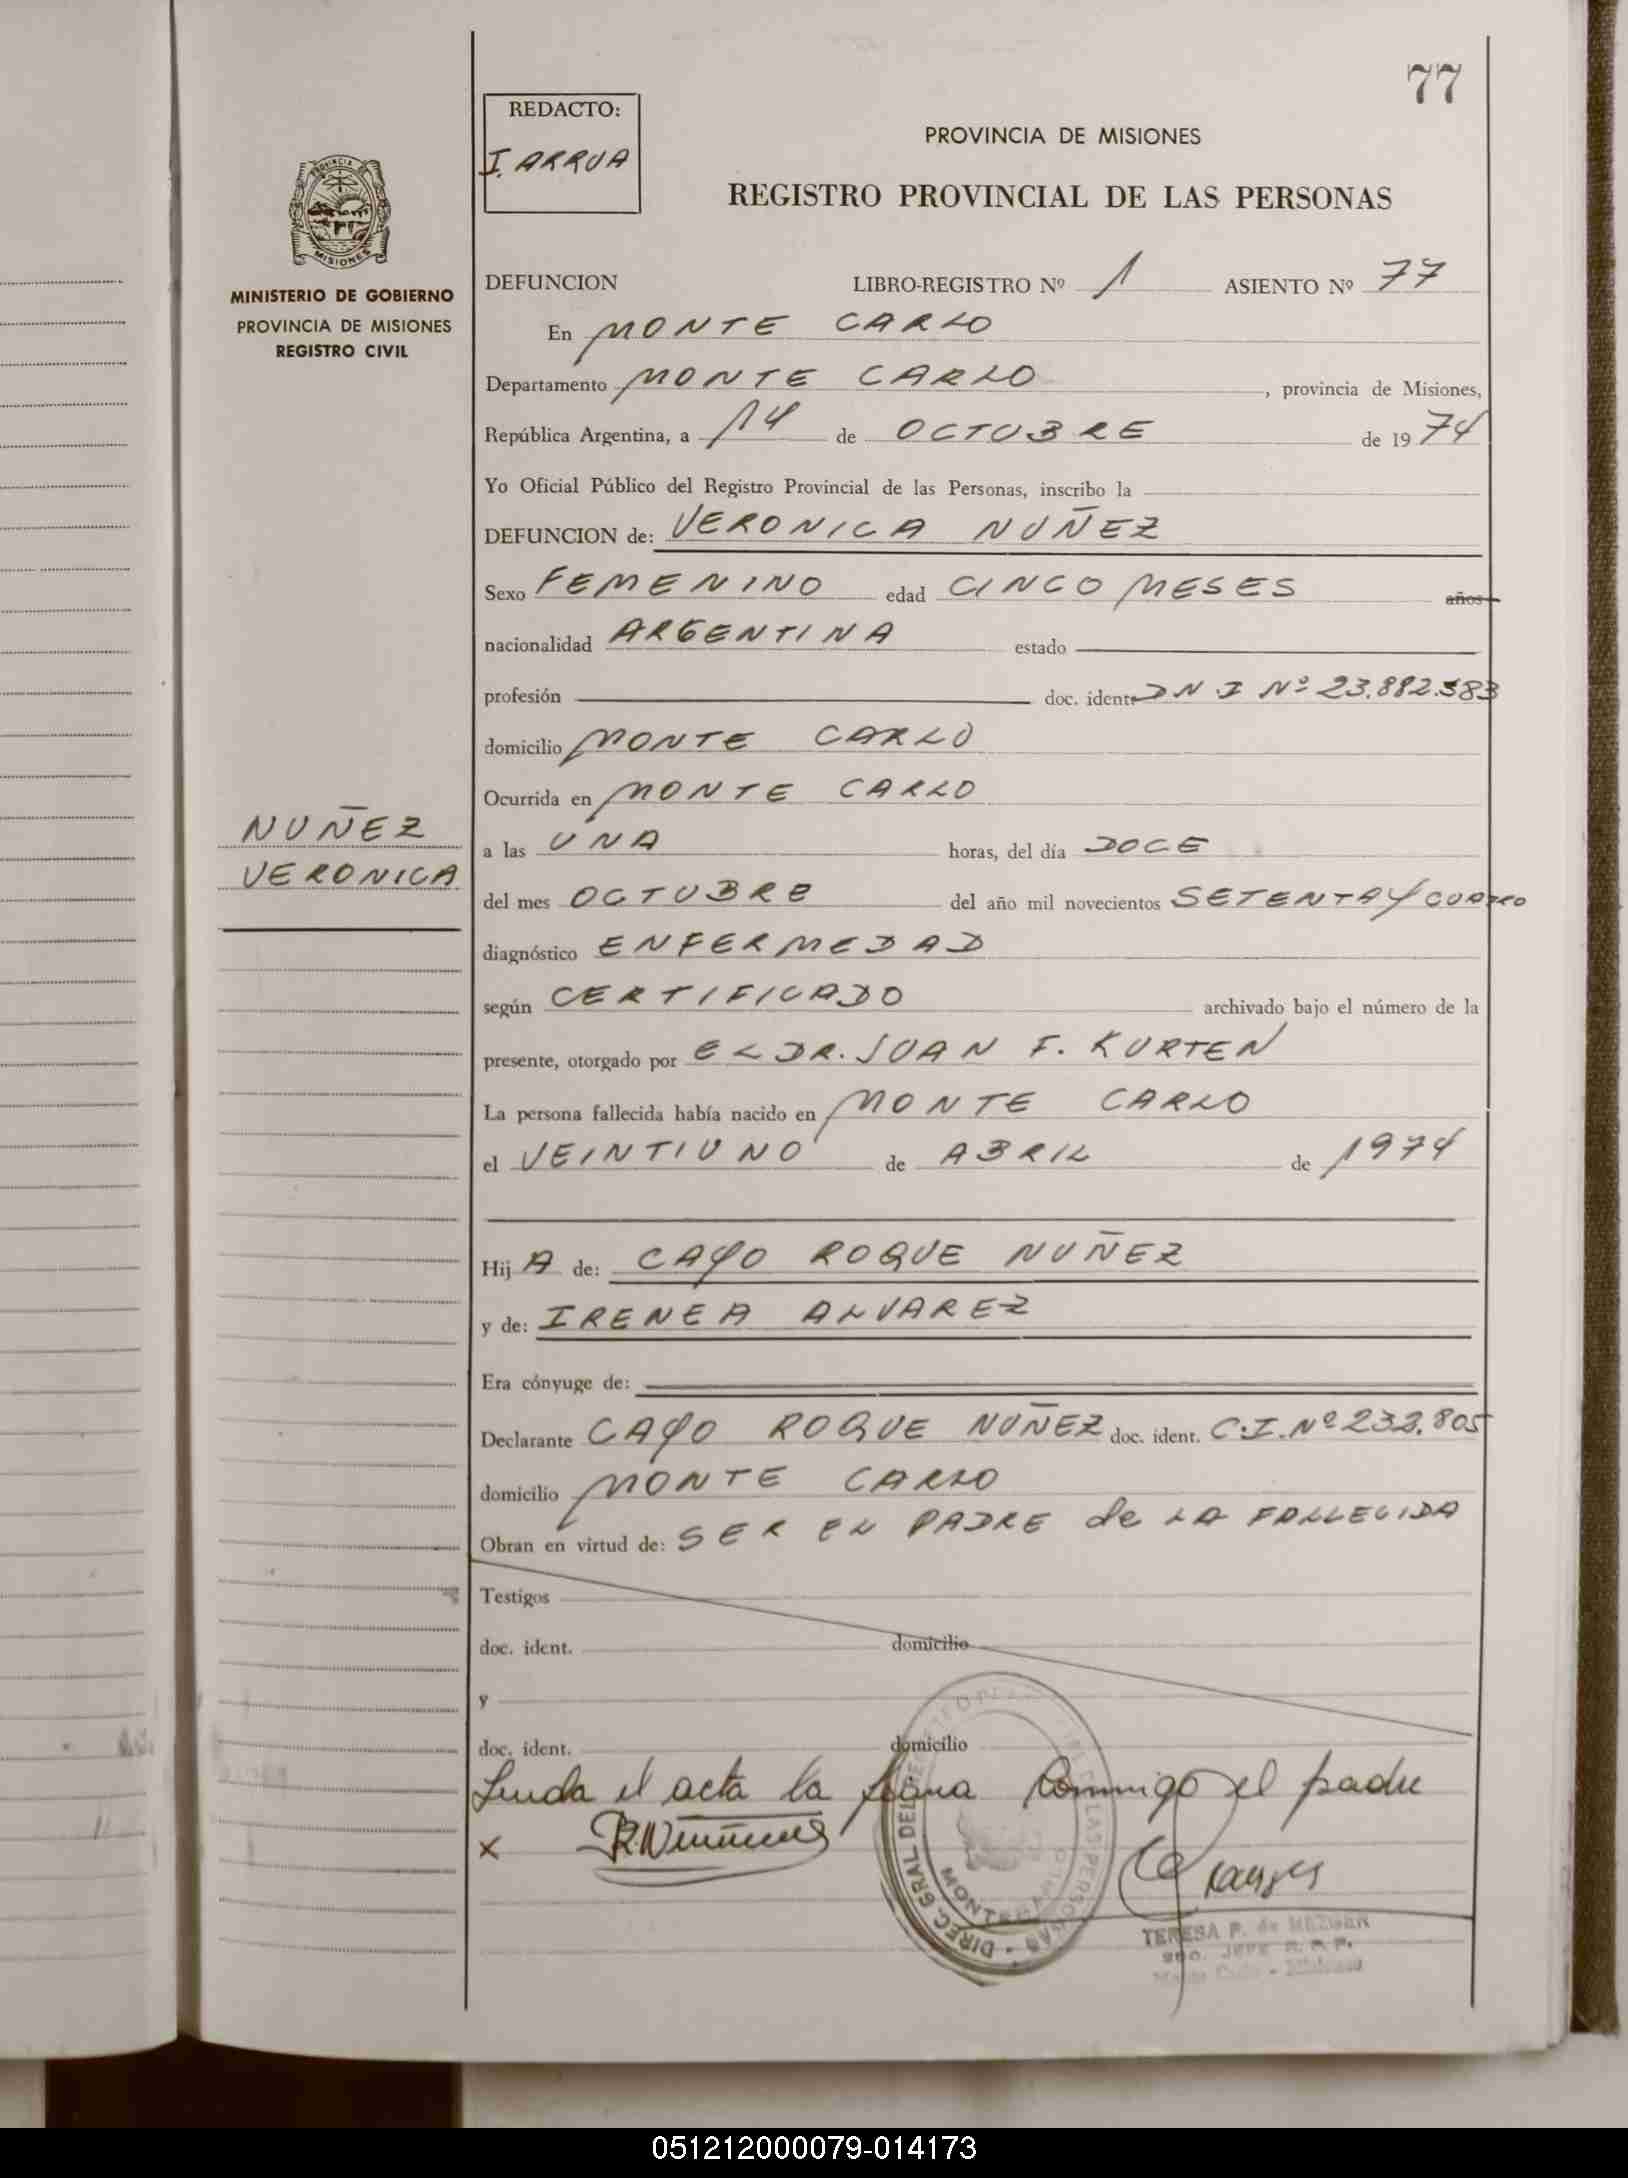 77
REDACTO:
I. ARRUA
PROVINCIA DE MISIONES
REGISTRO PROVINCIAL DE LAS PERSONAS
PROVINCIA
MISIONES
MINISTERIO DE GOBIERNO
PROVINCIA DE MISIONES
REGISTRO CIVIL
DEFUNCION LIBRO-REGISTRO Nº 1 ASIENTO Nº 77
En MONTE CARLO
Departamento MONTE CARLO, provincia de Misiones,
República Argentina, a 14 de OCTUBRE de 1974
Yo Oficial Público del Registro Provincial de las Personas, inscribo la
DEFUNCION de: VERONICA NUÑEZ
Sexo FEMENINO edad CINCO MESES años
nacionalidad ARGENTINA estado
profesión doc. ident. DNI Nº 23.882.583
domicilio MONTE CARLO
Ocurrida en MONTE CARLO
NUÑEZ
VERONICA
a las UNA horas, del día DOCE
del mes OCTUBRE del año mil novecientos SETENTA Y CUATRO
diagnóstico ENFERMEDAD
según CERTIFICADO archivado bajo el número de la
presente, otorgado por EL DR. JUAN F. KURTEN
La persona fallecida había nacido en MONTE CARLO
el VEINTIUNO de ABRIL de 1974
Hij A de: CAYO ROQUE NUÑEZ
y de: IRENEA ALVAREZ
Era cónyuge de:
Declarante CAYO ROQUE NUÑEZ doc. ident. C.I. Nº 232.805
domicilio MONTE CARLO
Obran en virtud de: SER EL PADRE de LA FALLECIDA
Testigos
doc. ident. domicilio
y
doc. ident. domicilio
Leida el acta la firma conmigo el padre
x
DIREC. GRAL DEL REGISTRO PROVINCIAL DE LAS PERSONAS
MONTECARLO
TERESA P. de
2do. JEFE R. P. P.
Monte Carlo - Misiones
051212000079-014173